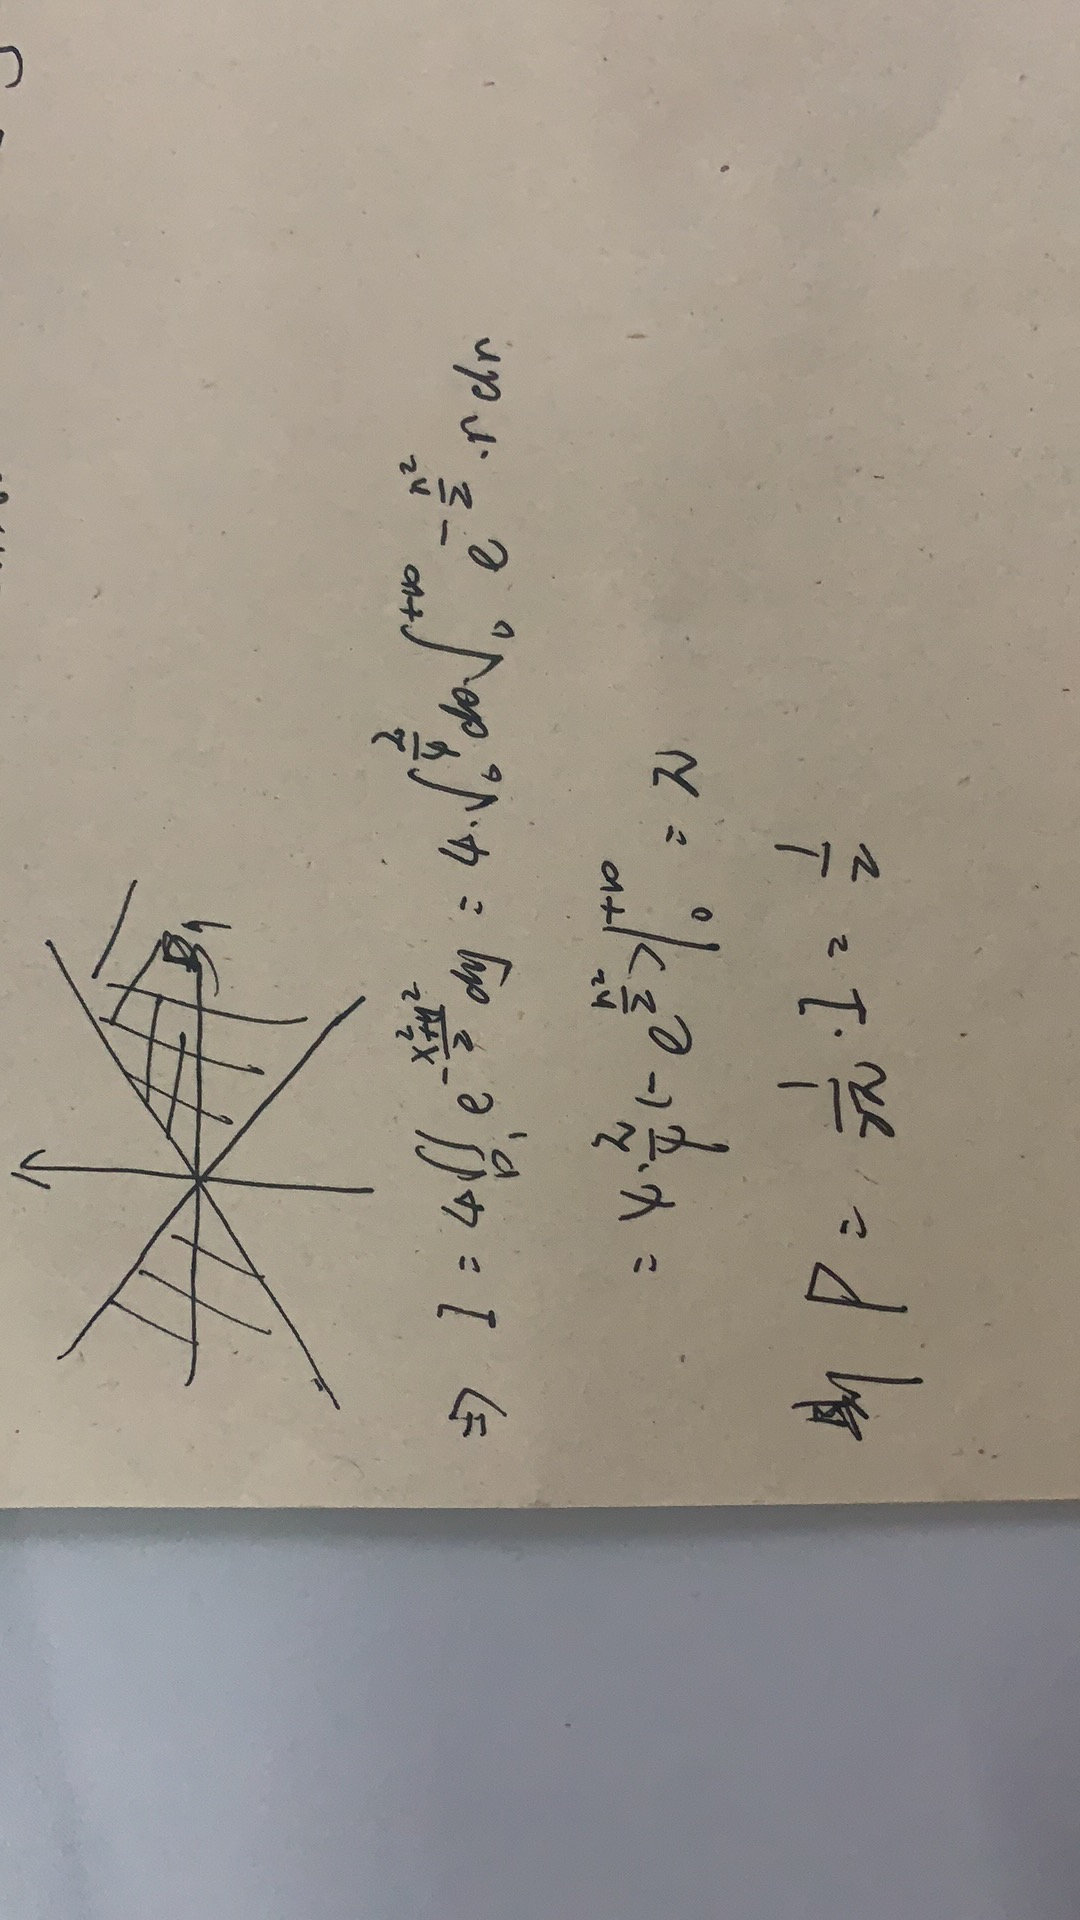 D₁
⇒ I = 4∬_{D₁} e^{-\frac{x²+y²}{2}} dy = 4·∫₀^{\frac{π}{4}} dθ·∫₀^{+∞} e^{-\frac{r²}{2}}·r dr
= 4·\frac{π}{4}(-e^{-\frac{r²}{2}})|₀^{+∞} = π
则 P = \frac{1}{2π}·I = \frac{1}{2}